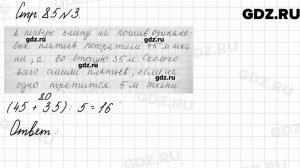 GDZ.RU
Стр. 85 №3.
В первую смену на пошив одинако-
вых платьев потратили 45 м тка
ни, а во вторую 35 м. Сколько
всего сшили платьев, если на
одно тратится 5 м ткани
80
(45 + 35) : 5 = 16
Ответ:
GDZ.RU